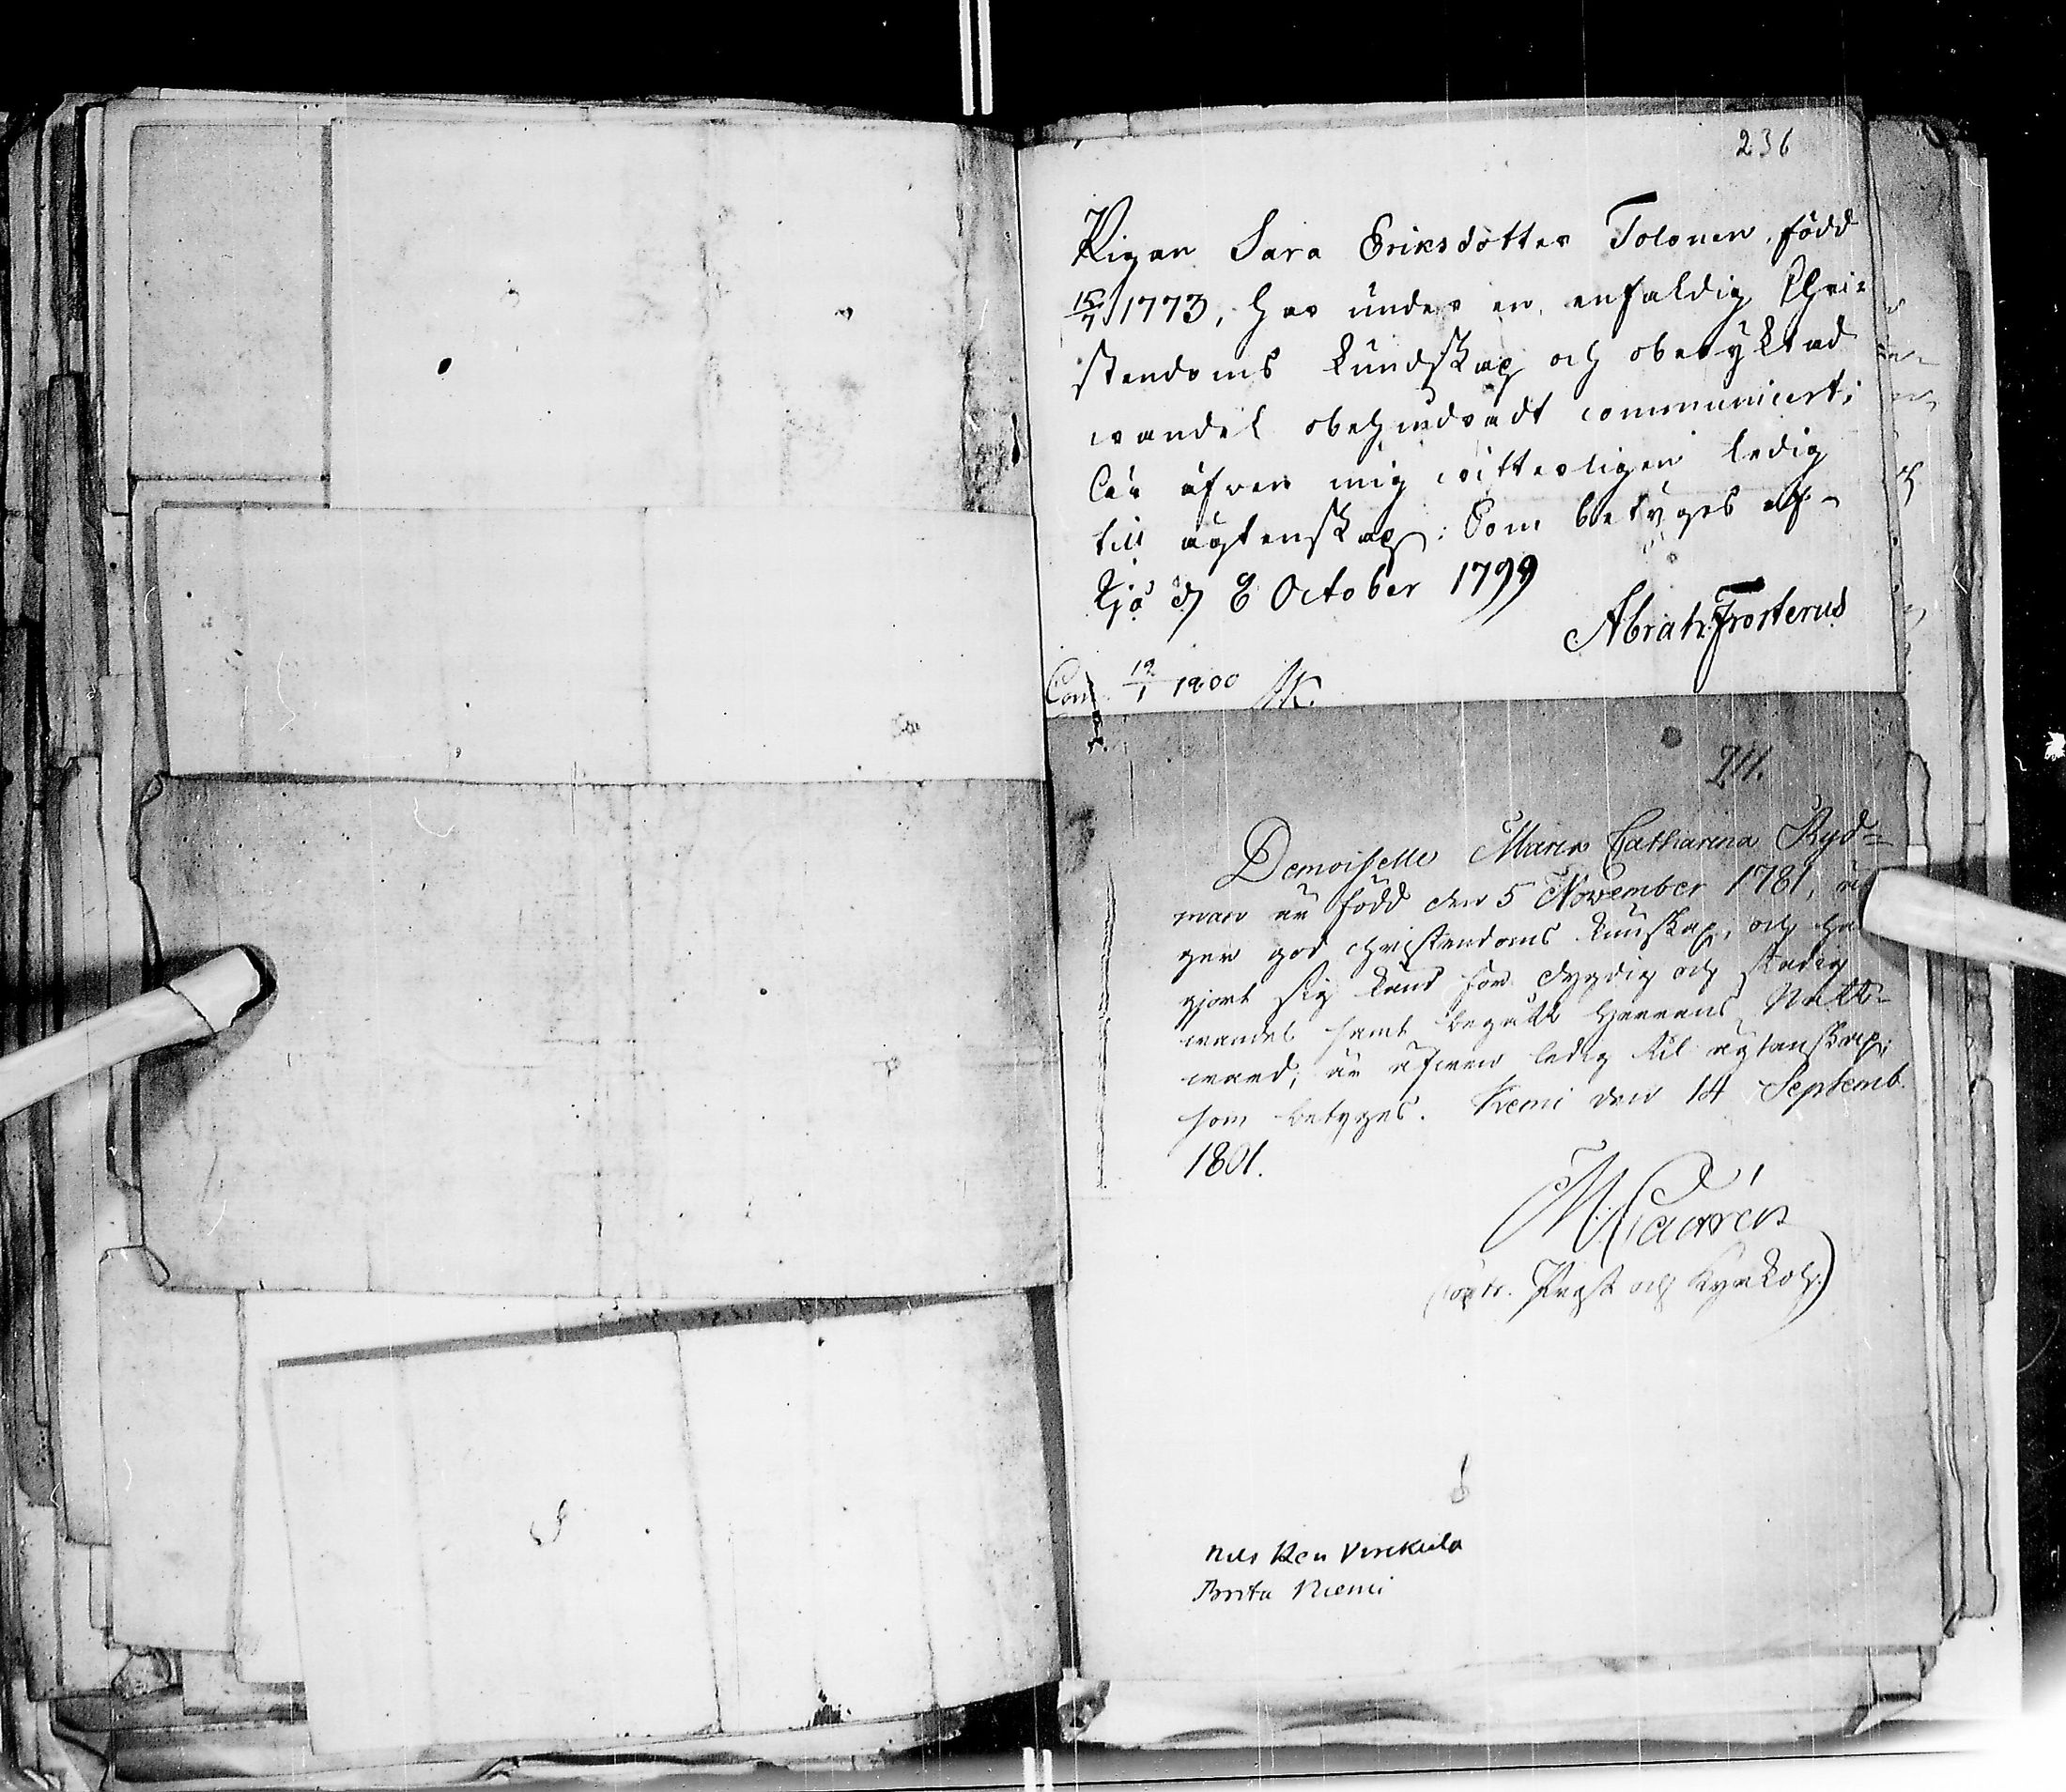 236
Pigan Sara Eriksdotter Tolonen, född
15/7 1773, har under en enfaldig Chri-
stendoms kundskap och oberyktad
vandel obehindradt communicert;
lär äfven mig vitterligen ledig
till ägtenskap: Som betygas af
d. 8 October 1799
Abrah. Frosterus
Com. 12/1 1800
211.
Demoiselle Maria Catharina Ryd-
man är född den 5 November 1781, ä
ger god christendoms kunskap, och ha
gjort sig känd för dygdig och stadig
wandel samt begådt Herrens Natt-
ward; är äfwen ledig til ägtenskap;
som betyges. Kemi den 14 Septemb.
1801.
M.
Prost och Kyrkoh.)
Brita Niemi